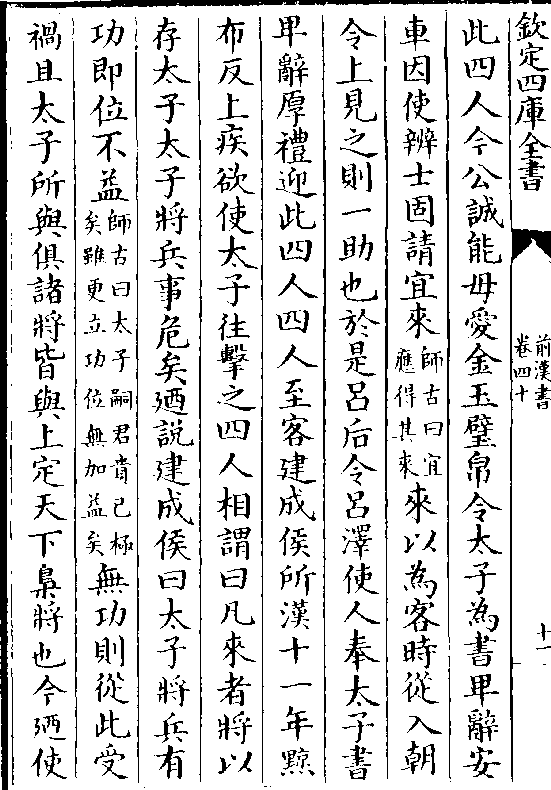 欽定四庫全書
前漢書
卷四十
十一
此四人今公誠能毋愛金玉璧帛令太子為書卑辭安
車因使辨士固請宜來師古曰宜應得其來來以為客時從入朝
令上見之則一助也於是呂后令呂澤使人奉太子書
卑辭厚禮迎此四人四人至客建成侯所漢十一年黥
布反上疾欲使太子往擊之四人相謂曰凡來者將以
存太子太子將兵事危矣廼說建成侯曰太子將兵有
功即位不益師古曰太子嗣君貴已極矣雖更立功位無加益矣無功則從此受
禍且太子所與俱諸將皆與上定天下梟將也今廼使